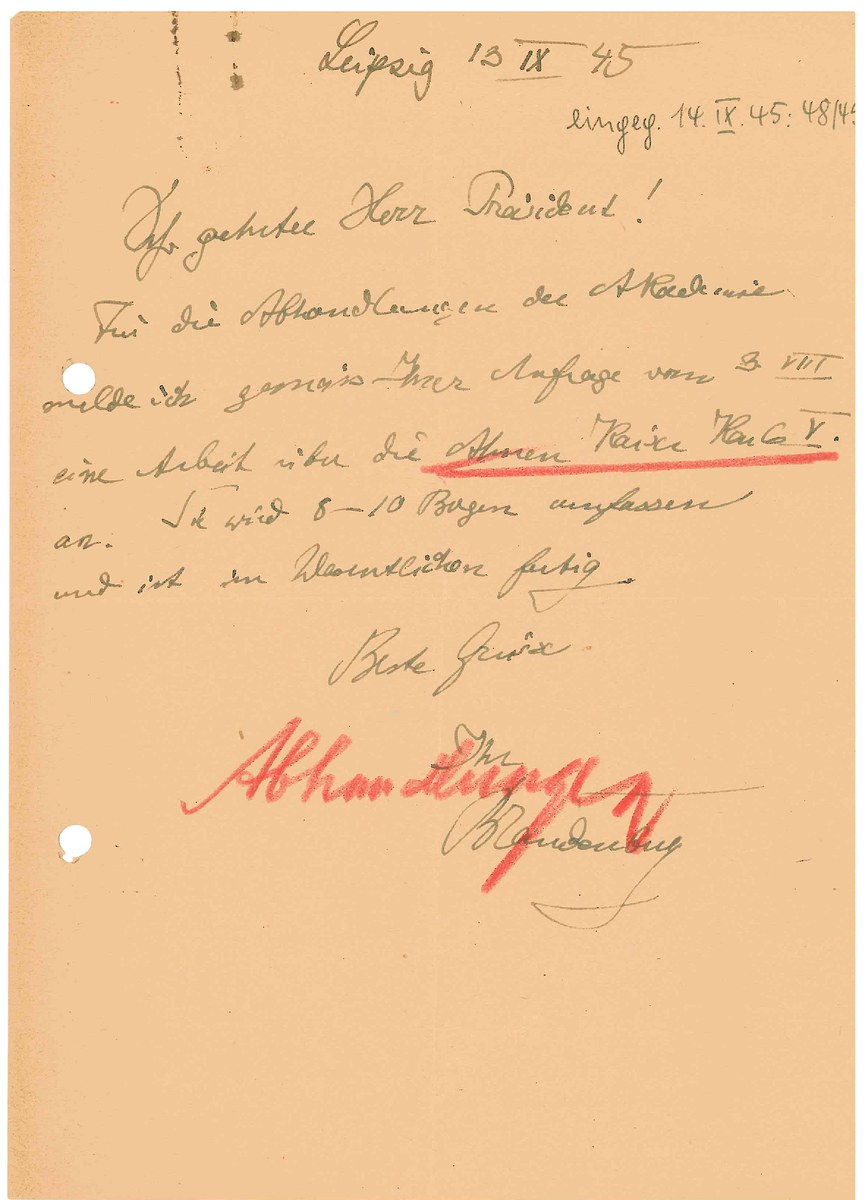 Leipzig 13 IX 45
eingeg. 14. IX. 45: 48/45
Sehr geehrter Herr Präsident!
Für die Abhandlungen der Akademie
melde ich gemäss Ihrer Anfrage vom 3 VIII
eine Arbeit über die Ahnen Kaiser Karls V.
an. Sie wird 8–10 Bogen umfassen
und ist im Wesentlichen fertig.
Beste Grüsse
Ihr
Abhandlungen
Brandenburg